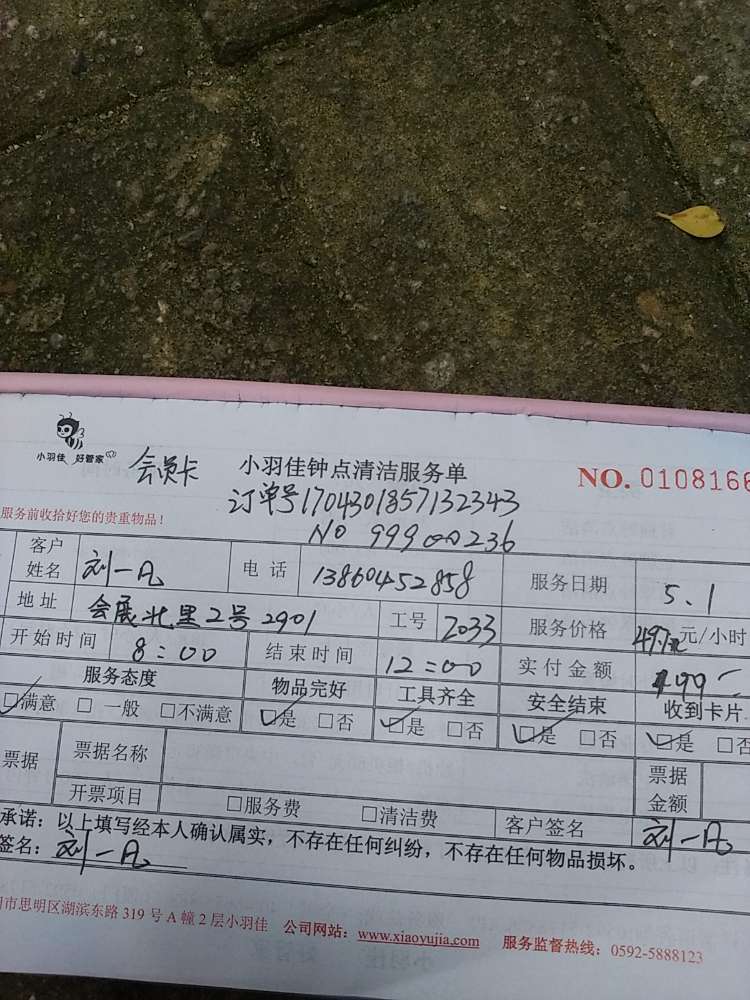 小羽佳 好管家
会员卡 小羽佳钟点清洁服务单 NO. 0108166
订单号1704301857132343
服务前收拾好您的贵重物品！
NO 99900236
客户姓名 刘一凡 电话 13860452858 服务日期 5.1
地址 会展北里2号2901 工号 2033 服务价格 元/小时
开始时间 8:00 结束时间 12:00 实付金额
服务态度 物品完好 工具齐全 安全结束 收到卡片
☑满意 □一般 □不满意 ☑是 □否 ☑是 □否 ☑是 □否 ☑是 □否
票据 票据名称 票据金额
开票项目 □服务费 □清洁费 客户签名 刘一凡
承诺：以上填写经本人确认属实，不存在任何纠纷，不存在任何物品损坏。
签名：刘一凡
市思明区湖滨东路 319 号 A 幢 2 层小羽佳 公司网站：www.xiaoyujia.com 服务监督热线：0592-5888123